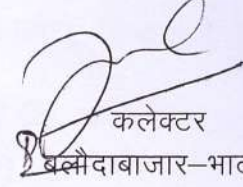 कलेक्टर
बलौदाबाजार–भाट